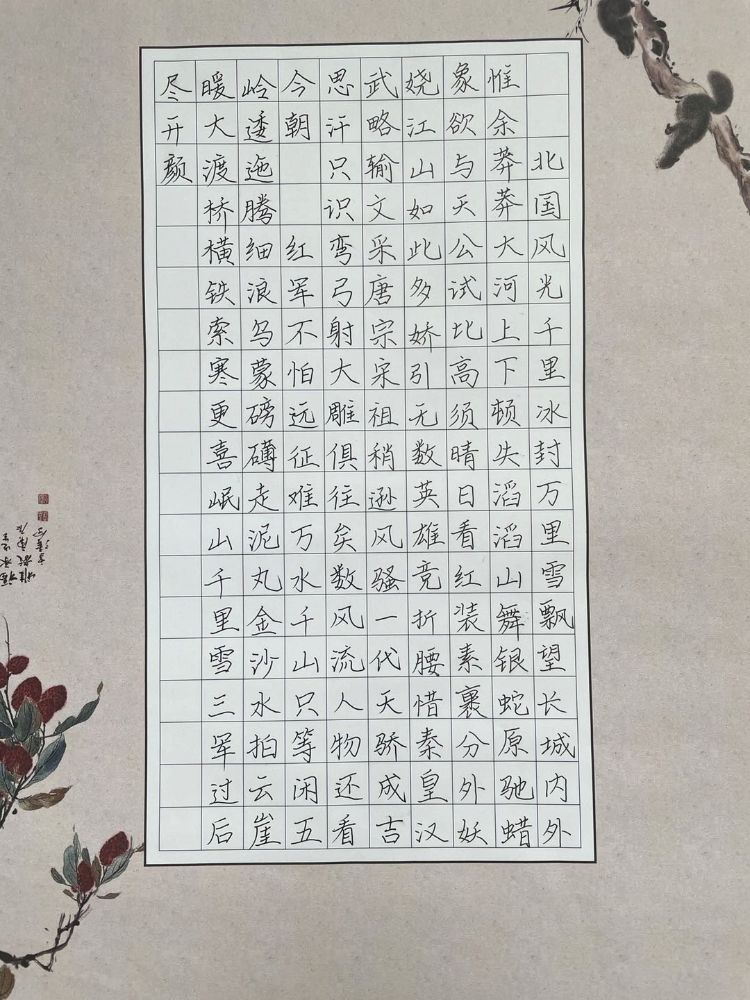 北国风光千里冰封万里雪飘望长城内外
惟余莽莽大河上下顿失滔滔山舞银蛇原驰蜡
象欲与天公试比高须晴日看红装素裹分外妖
娆江山如此多娇引无数英雄竞折腰惜秦皇汉
武略输文采唐宗宋祖稍逊风骚一代天骄成吉
思汗只识弯弓射大雕俱往矣数风流人物还看
今朝 红军不怕远征难万水千山只等闲五
岭逶迤腾细浪乌蒙磅礴走泥丸金沙水拍云崖
暖大渡桥横铁索寒更喜岷山千里雪三军过后
尽开颜